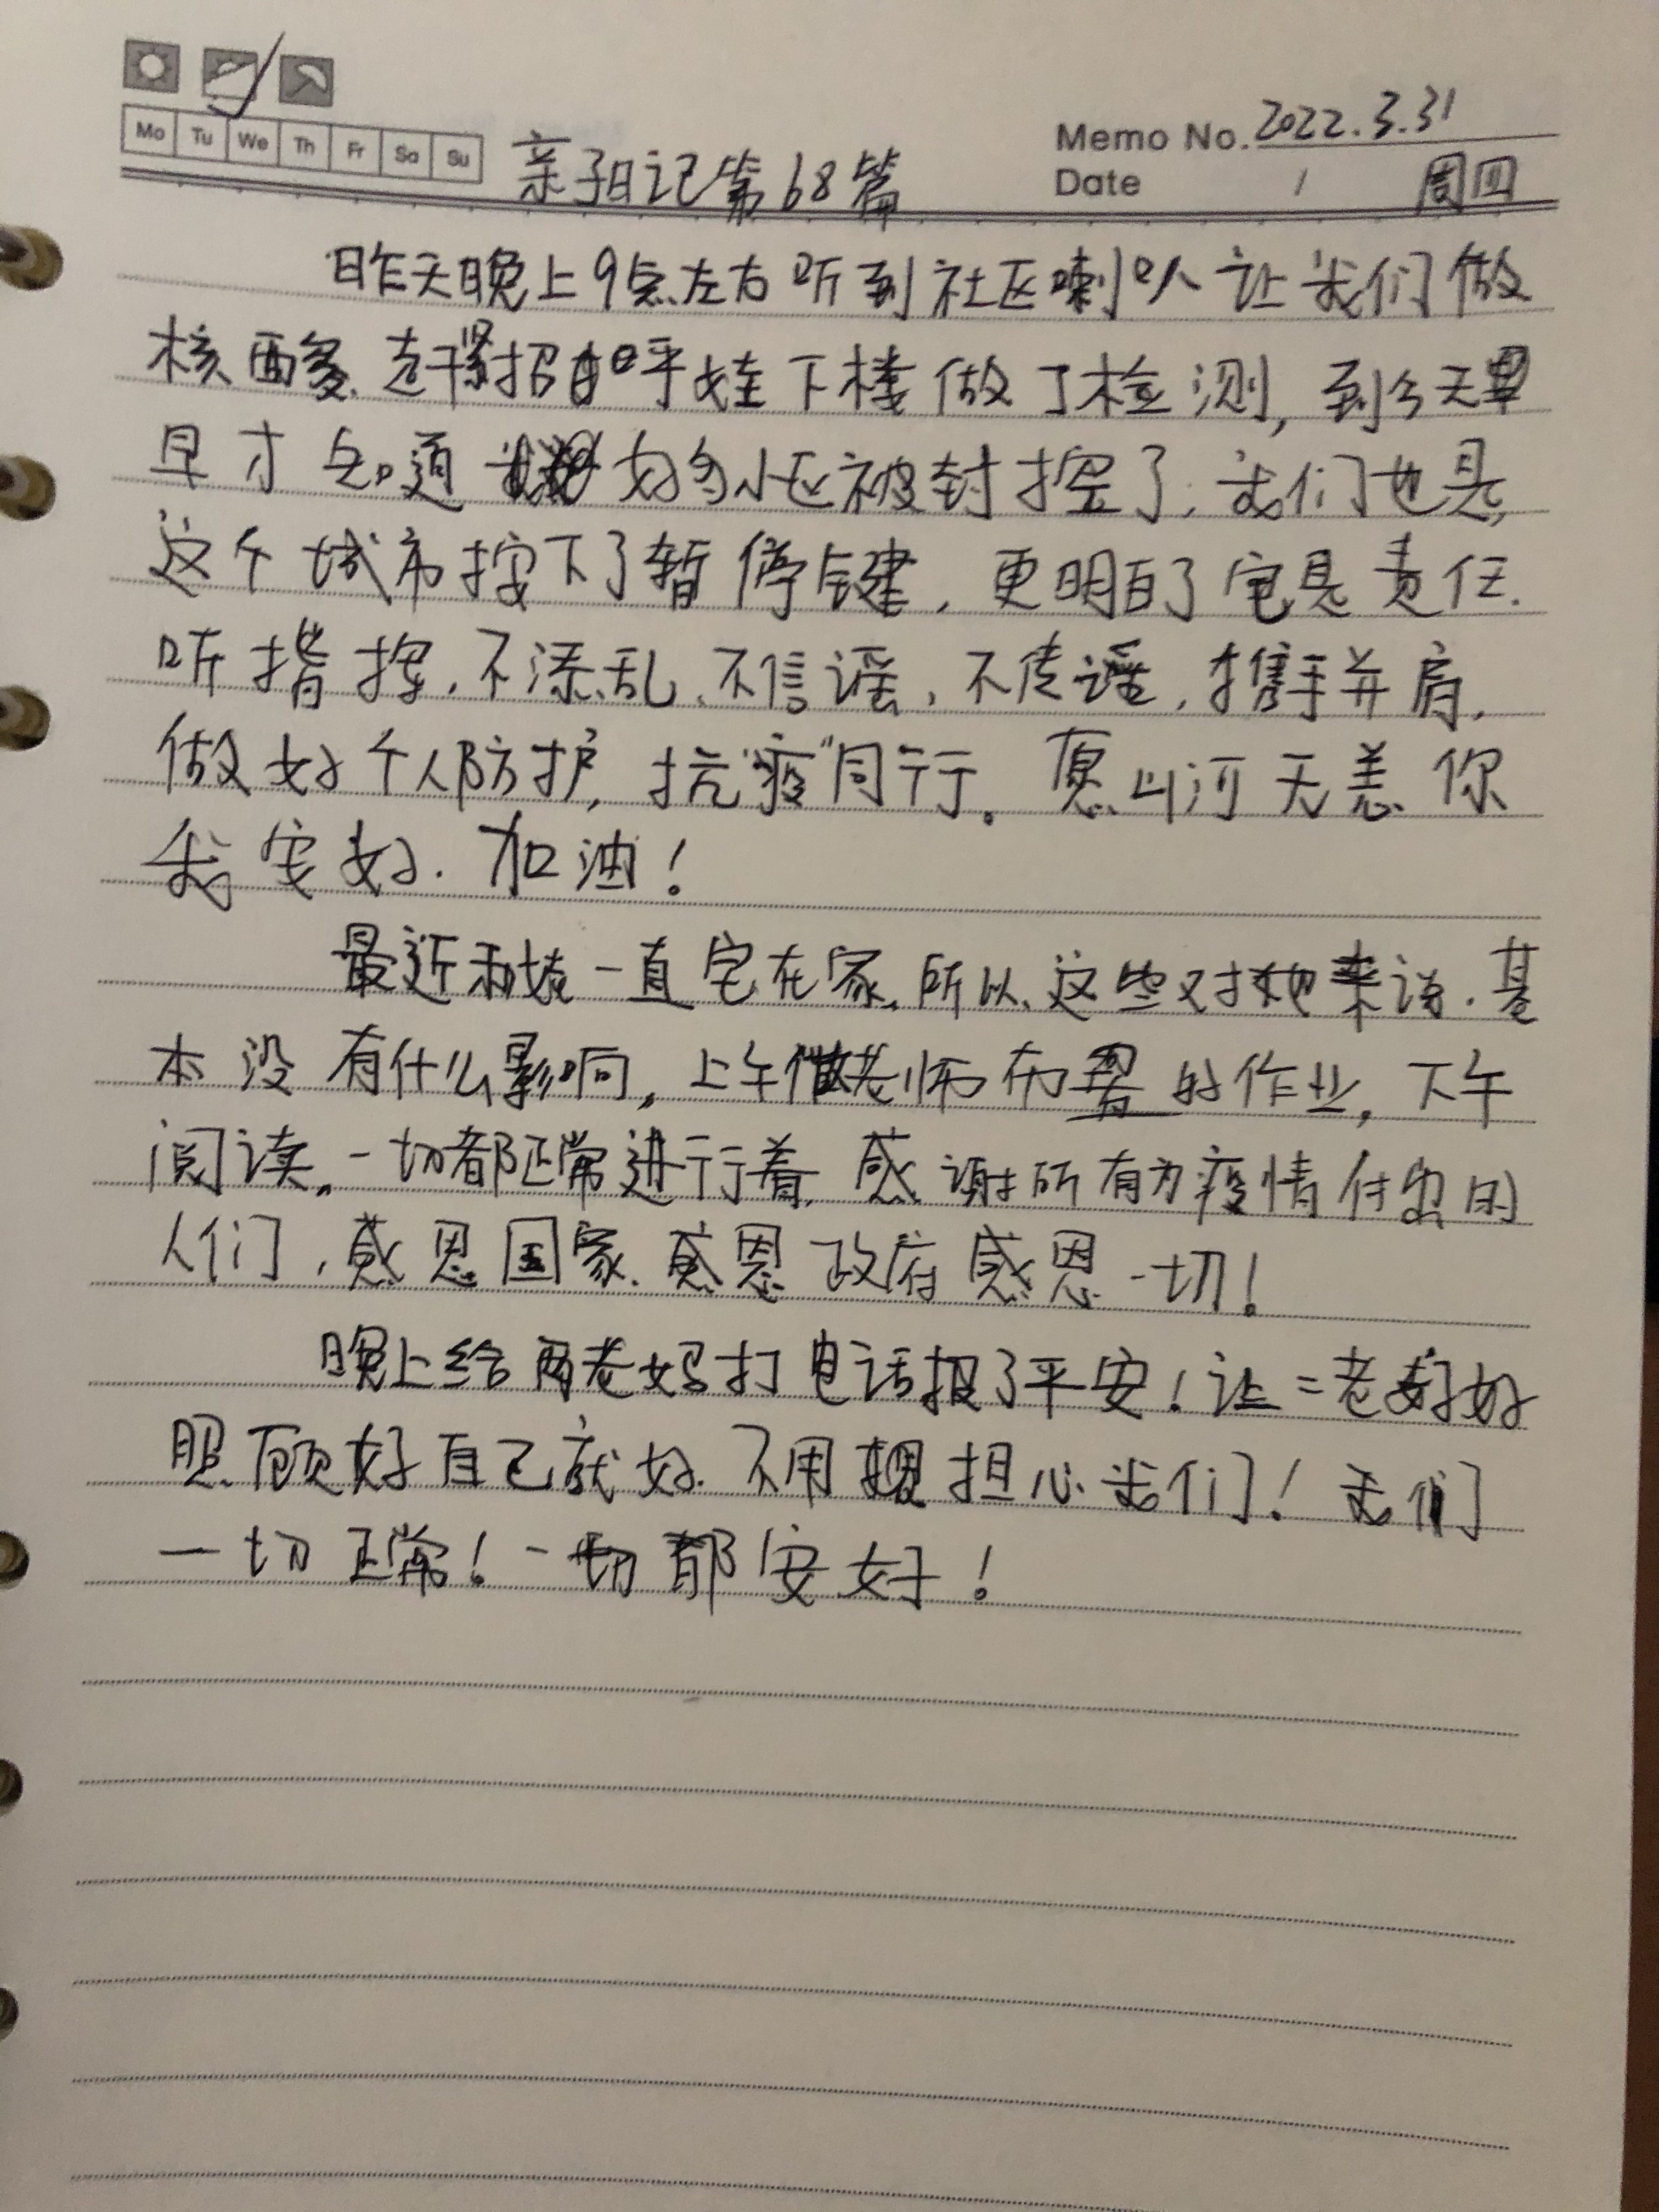 Mo Tu We Th Fr Sa Su
Memo No. 2022.3.31
Date / 周四
亲子日记第68篇
昨天晚上9点左右听到社区喇叭让我们做
核酸,赶紧招呼娃下楼做了检测,到今天
早才知道好多小区被封控了,我们也是,
这个城市按下了暂停键,更明白了宅是责任.
听指挥,不添乱、不信谣,不传谣,携手并肩,
做好个人防护,抗"疫"同行。愿山河无恙你
我安好.加油!
最近和娃一直宅在家,所以,这些对她来说.基
本没有什么影响,上午做老师布署的作业,下午
阅读,一切都正常进行着,感谢所有为疫情付出的
人们,感恩国家.感恩政府感恩一切!
晚上给两老妈打电话报了平安!让二老好好
照顾好自己就好.不用担心我们!我们
一切正常!一切都安好!